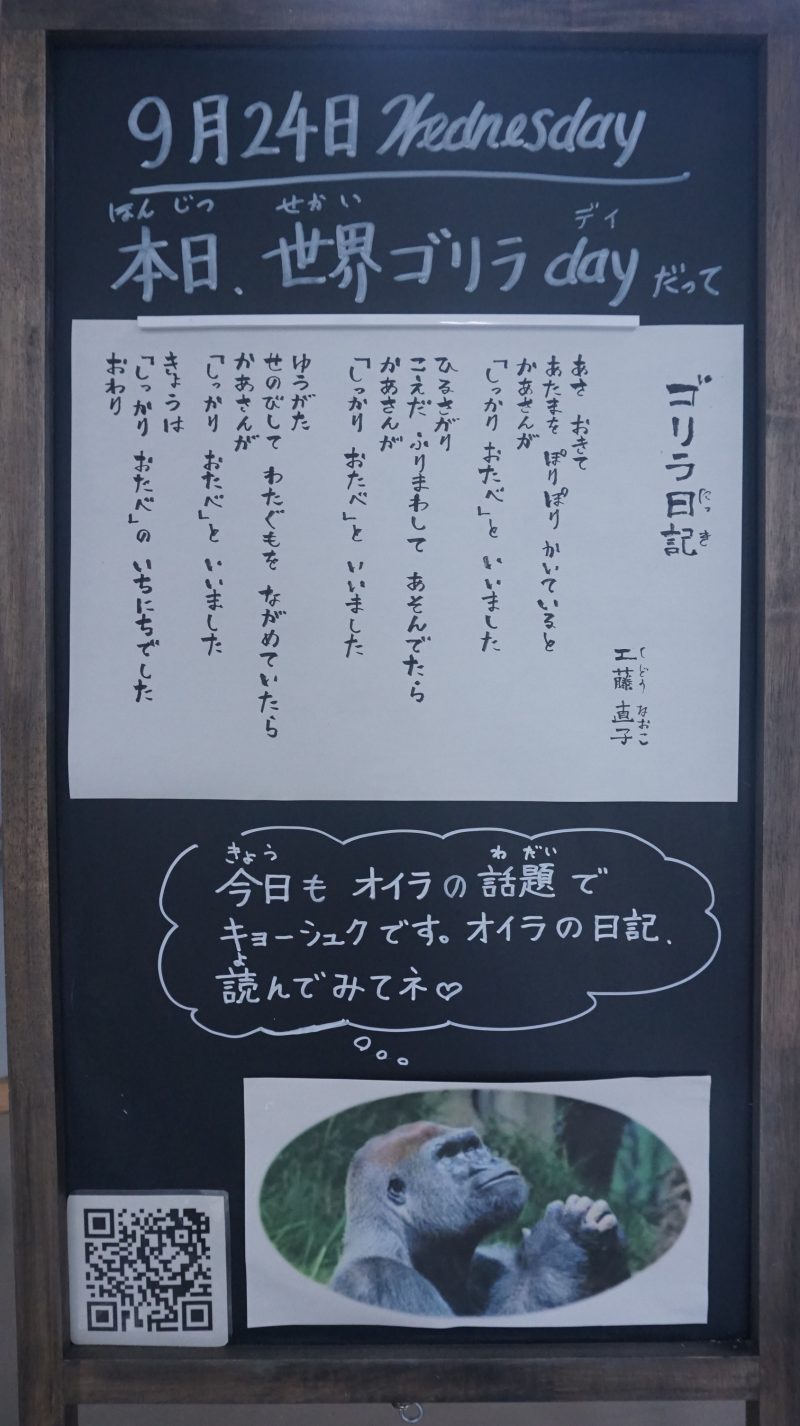 9月24日 Wednesday
ほんじつ せかい デイ
本日、世界ゴリラdayだって
ゴリラ日記
にっき
くどう なおこ
工藤 直子
あさ おきて
あたまを ぽりぽり かいていると
かあさんが
「しっかり おたべ」と いいました
ひるさがり
こえだ ふりまわして あそんでたら
かあさんが
「しっかり おたべ」と いいました
ゆうがた
せのびして わたぐもを ながめていたら
かあさんが
「しっかり おたべ」と いいました
きょうは
「しっかり おたべ」の いちにちでした
おわり
きょう わだい
今日も オイラの話題で
キョーシュクです。オイラの日記、
よ
読んでみてネ♡